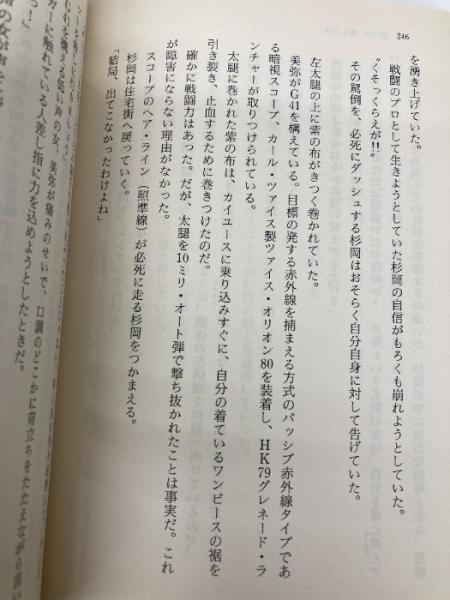 246
を湧き上げていた。
戦闘のプロとして生きようとしていた杉岡の自信がもろくも崩れようとしていた。
〝くそっくらえが!!〟
その罵倒を、必死にダッシュする杉岡はおそらく自分自身に対して告げていた。
左太腿の上に紫の布がきつく巻かれていた。
美弥がG41を構えている。目標の発する赤外線を捕まえる方式のパッシブ赤外線タイプであ
る暗視スコープ、カール・ツァイス製ツァイス・オリオン80を装着し、HK79グレネード・ラ
ンチャーが取りつけられている。
太腿に巻かれた紫の布は、カイユースに乗り込みすぐに、自分の着ているワンピースの裾を
引き裂き、止血するために巻きつけたのだ。
確かに戦闘力はあった。だが、太腿を10ミリ・オート弾で撃ち抜かれたことは事実だ。これ
が障害にならない理由がなかった。
スコープのヘア・ライン（照準線）が必死に走る杉岡をつかまえる。
杉岡は住宅街へ戻っていく。
「結局、出てこなかったわけよね」
の女、美弥が痛みのせいで、口調のどこかに苛立ちをたたえながら
ガーに触れている人差し指に力を込めようとしたときだ。